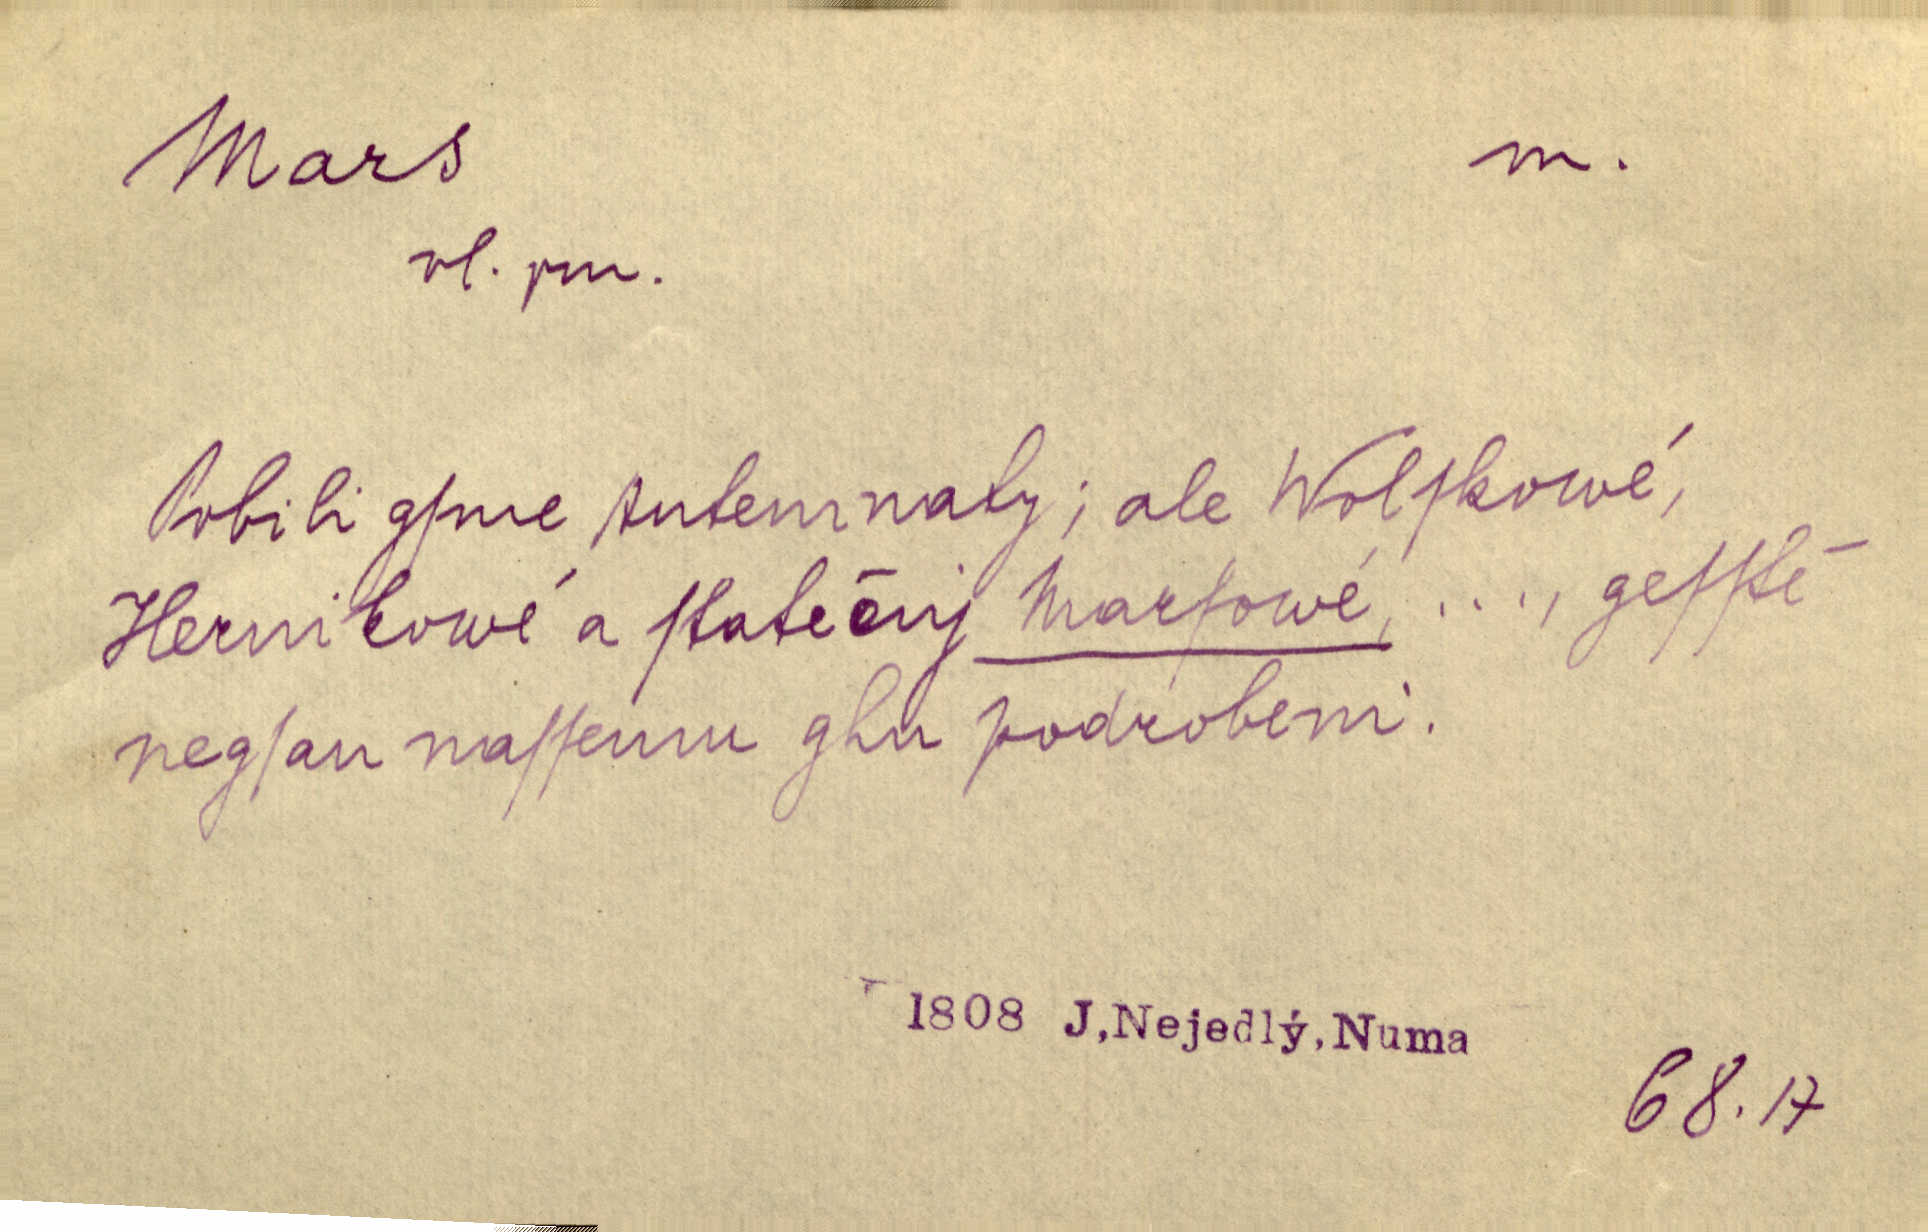 Mars m.
vl. jm.
Pobili gſme Antemnaty; ale Wolſkowé,
Hernikowé a ſtatečnj Marſowé, ...., geſſtě
negſau naſſemu ghu podrobeni.
1808 J,Nejedlý,Numa
68.17